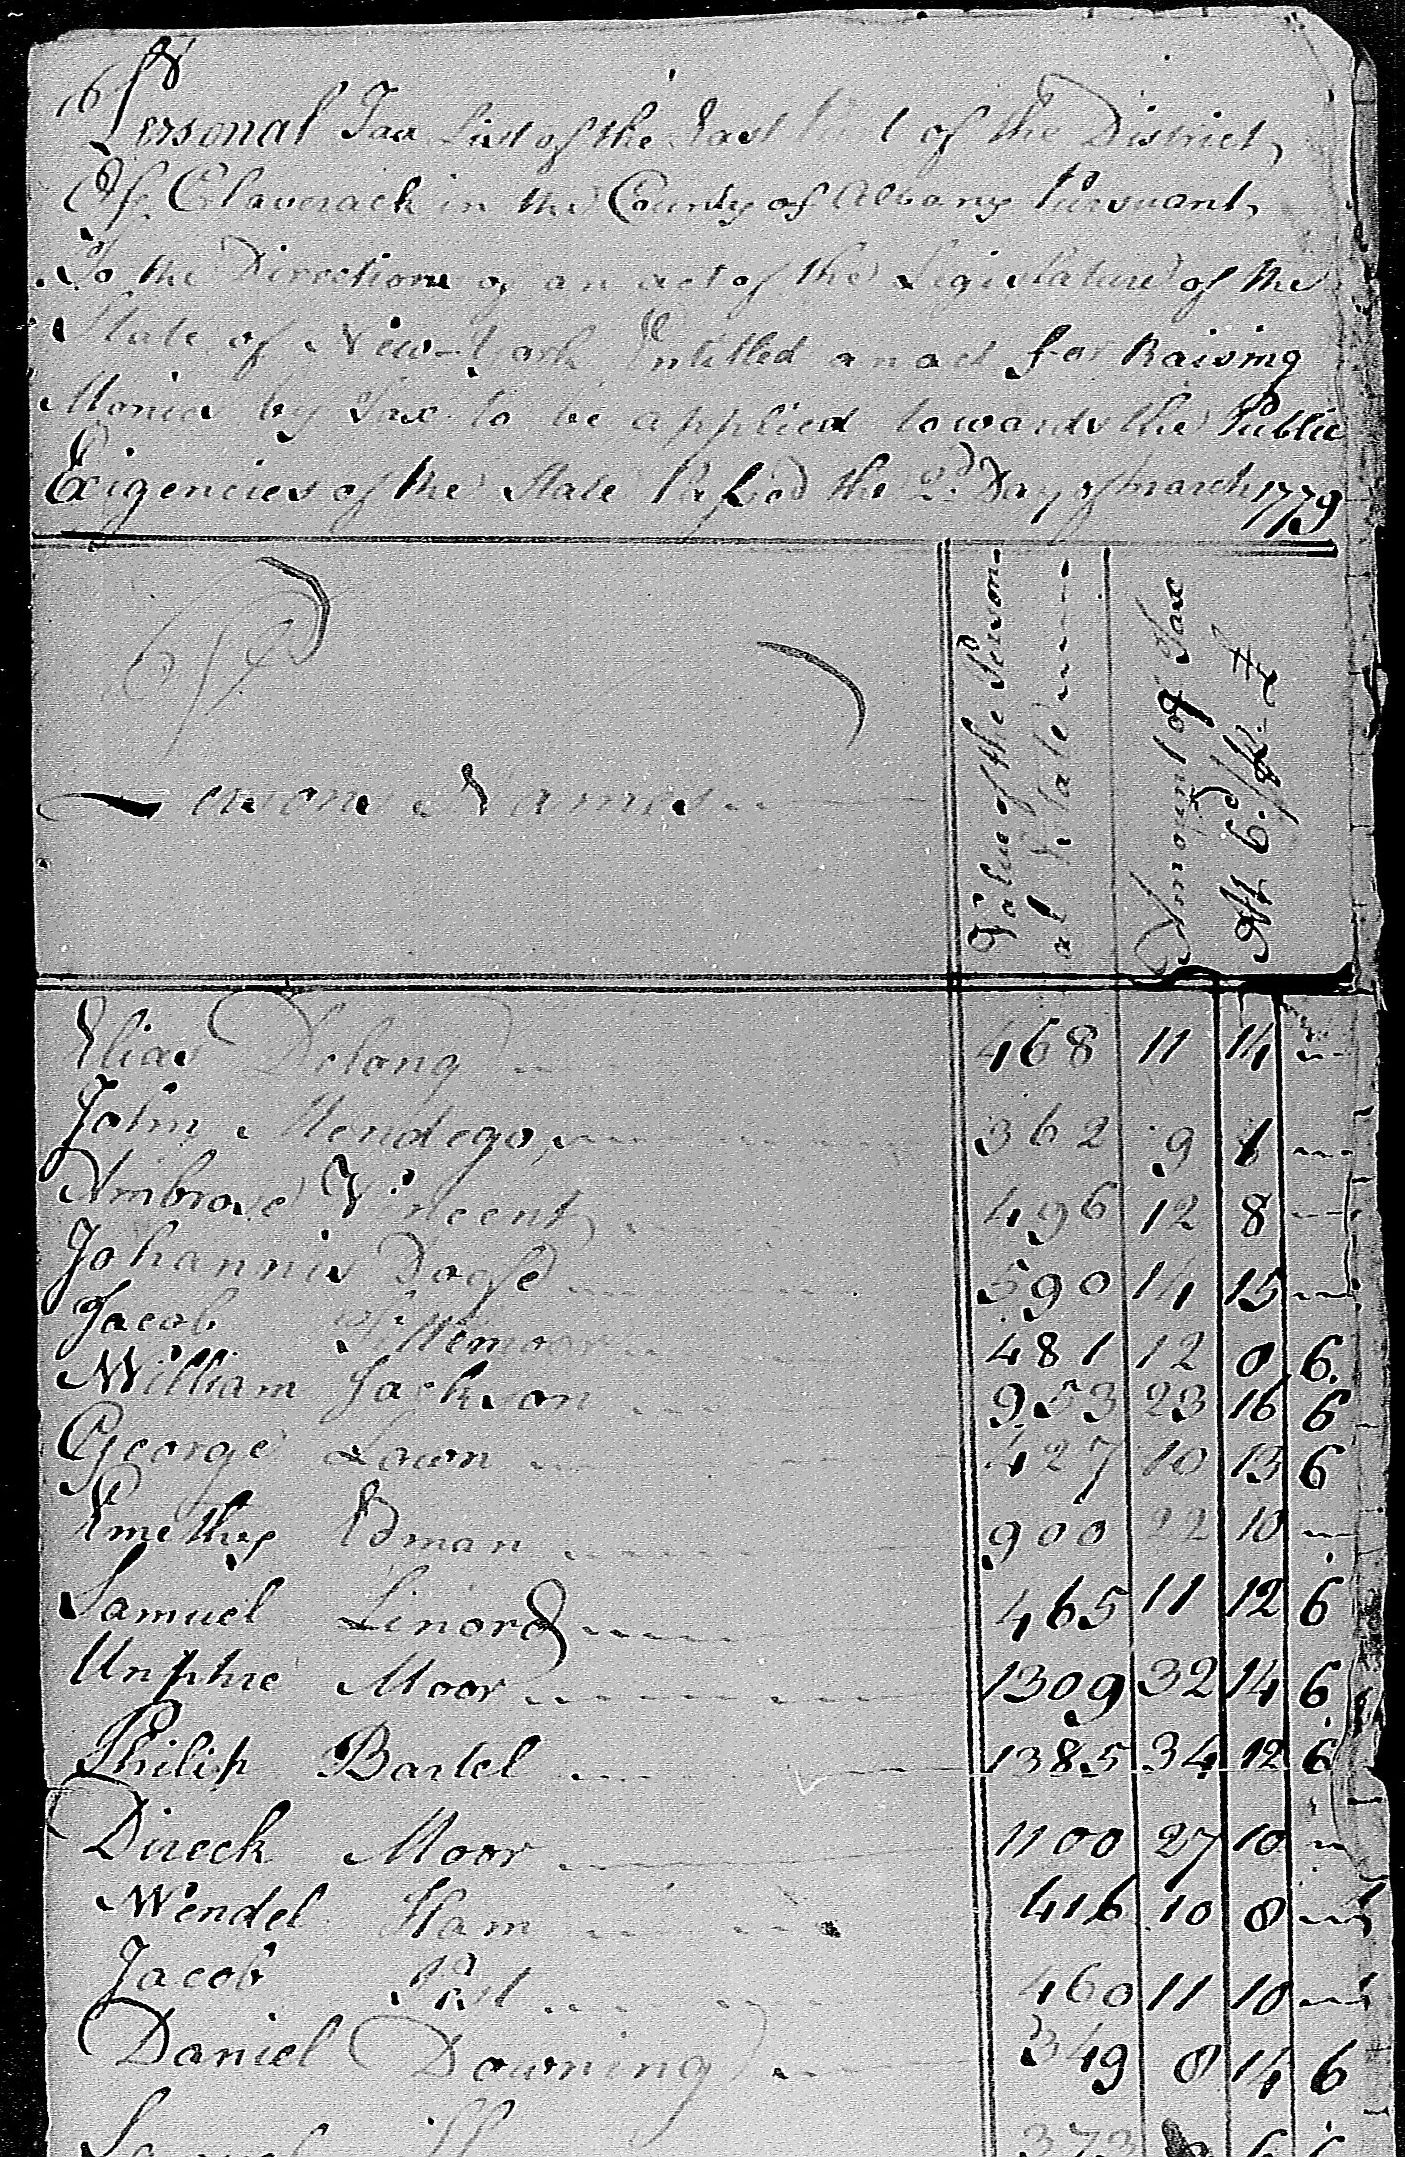 Personal Tax List of the East of the District
Of Claverack in the County of Albany Pursuant
To the Directions of an act of the Legislature of the
State of New-York Intitled an act for Raising
Monies by Tax to be applied towards the Public
Exigencies of the State Passed the 2d Day of march 1779
Persons Names
Value of the Person-
al Estate
Amount of Tax
At 6d/
Elias Delong 468 11 14
John 362 9 1
Ambrose Vincent 496 12 8
Johannis 590 14 15
Jacob 481 12 0 6
William Jackson 953 23 16 6
George Lown 427 10 13 6
Edman 900 22 10
Samuel Linord 465 11 12 6
Unphre Moor 1309 32 14 6
Philip Bartel 1385 34 12 6
Direck Moor 1100 27 10
Wendel Ham 416 10 8
Jacob 460 11 10
Daniel Downing 349 8 14 6
373